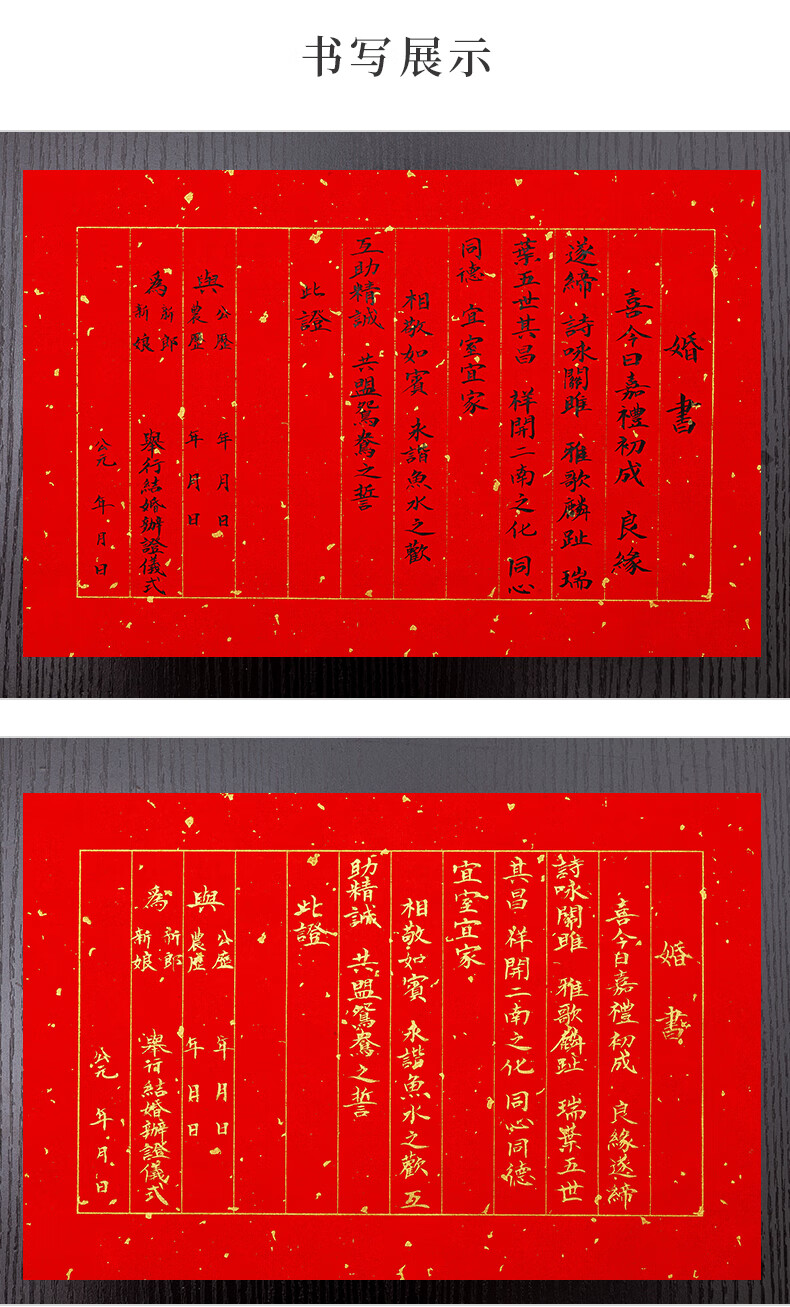 书写展示
婚書
喜今日嘉禮初成 良緣
遂締 詩咏關雎 雅歌麟趾 瑞
葉五世其昌 祥開二南之化 同心
同德 宜室宜家
相敬如賓 永諧魚水之歡
互助精誠 共盟鴛鴦之誓
此證
與 公歷 年 月 日
農歷 年 月 日
為 新郎
新娘 舉行結婚辦證儀式
公元 年 月 日
婚書
喜今日嘉禮初成 良緣遂締
詩咏關雎 雅歌麟趾 瑞葉五世
其昌 祥開二南之化 同心同德
宜室宜家
相敬如賓 永諧魚水之歡 互
助精誠 共盟鴛鴦之誓
此證
與 公歷 年 月 日
農歷 年 月 日
為 新郎
新娘 舉行結婚辦證儀式
公元 年 月 日